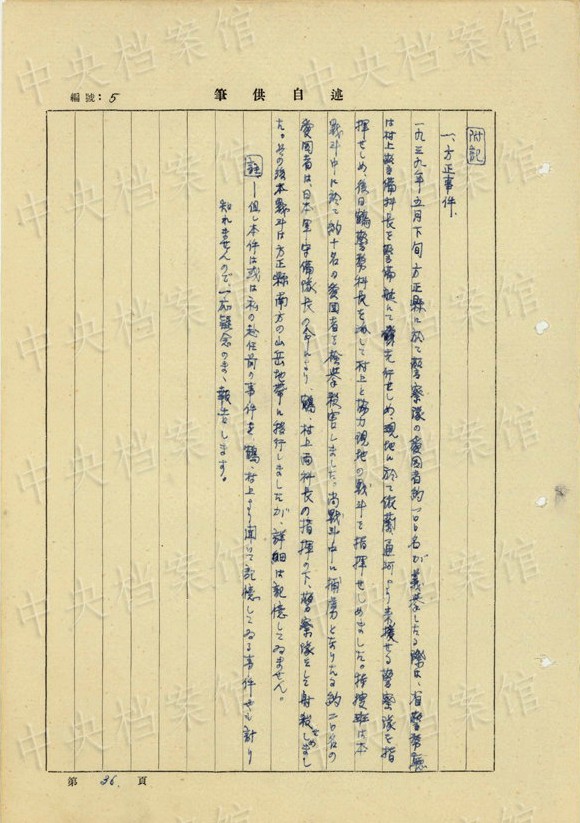 編號：5
筆供自述
附記
一、方正事件、
一九三九年五月下旬方正縣に於て警察隊の愛国者約一〇〇名が義挙したる際は、省警務廳
は村上警備科長を警備 現地に於て依蘭通河より来援せる警察隊を指
揮せしめ、後日鶴警務科長を 村上と協力現地の戦斗を指揮せしめました。特捜班は本
戦斗中に於て約十名の愛国者を検挙殺害しました。尚戦斗中に捕虜となりたる約二〇名の
愛国者は、日本軍守備隊長の命により、鶴、村上両科長の指揮の下、警察隊をして射殺せしめまし
た。その後本戦斗は方正縣南方の山岳地帯に移行しましたが、詳細は記憶してゐません。
註 ー但し本件は或は私の赴任前の事件を鶴、村上より聞いて記憶してゐる事件かも計り
知れませんので、一応疑念のまゝ報告します。
第 26 頁
中央档案馆